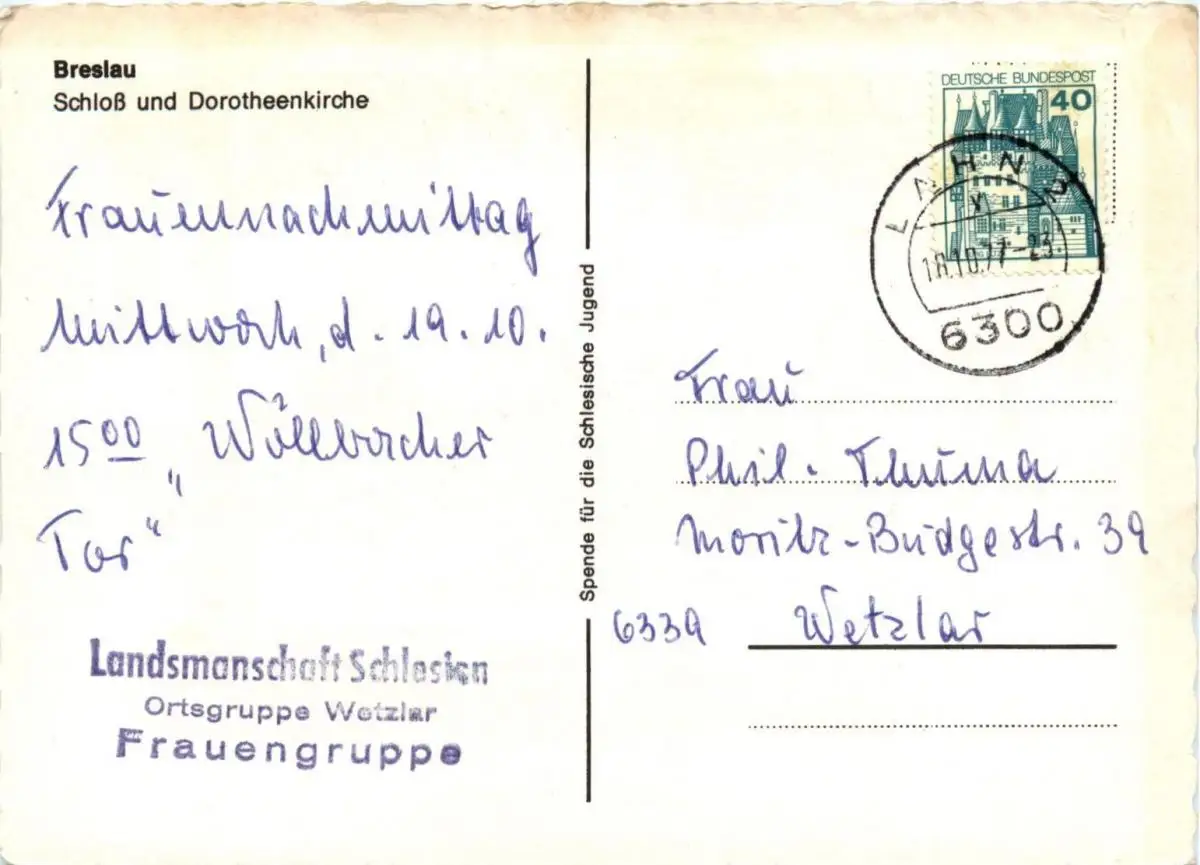 Breslau
Schloß und Dorotheenkirche
Frauennachmittag
Mittwoch, d. 19.10.
15 00 „Wöllbacher
Tor“
Landsmanschaft Schlesien
Ortsgruppe Wetzlar
Frauengruppe
Spende für die Schlesische Jugend
DEUTSCHE BUNDESPOST
40
LAHN 2
18.10.77-23
6300
Frau
Phil. Thuma
Moritz-Budgestr. 39
6339 Wetzlar